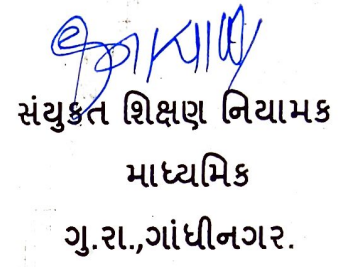 સંયુક્ત શિક્ષણ નિયામક
માધ્યમિક
ગુ.રા.,ગાંધીનગર.